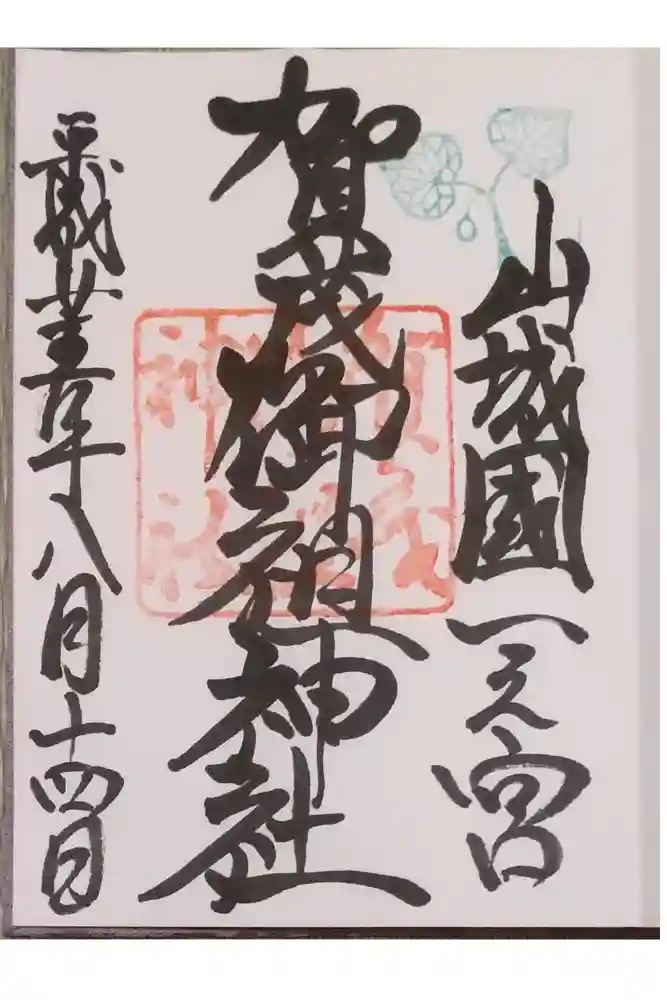 山城國一之宮
賀茂御祖神社
平成廿五年八月十四日
賀茂
御祖
神社